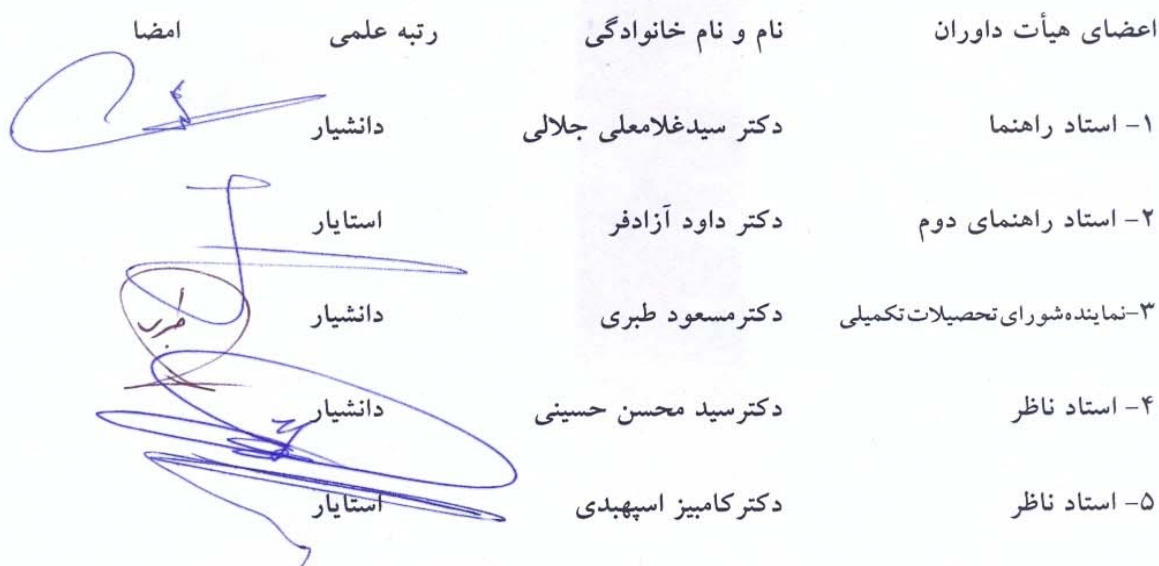 اعضای هیأت داوران نام و نام خانوادگی رتبه علمی امضا
۱- استاد راهنما دکتر سیدغلامعلی جلالی دانشیار
۲- استاد راهنمای دوم دکتر داود آزادفر استایار
۳-نماینده‌شورای‌تحصیلات‌تکمیلی دکترمسعود طبری دانشیار
۴- استاد ناظر دکترسید محسن حسینی دانشیار
۵- استاد ناظر دکترکامبیز اسپهبدی استایار